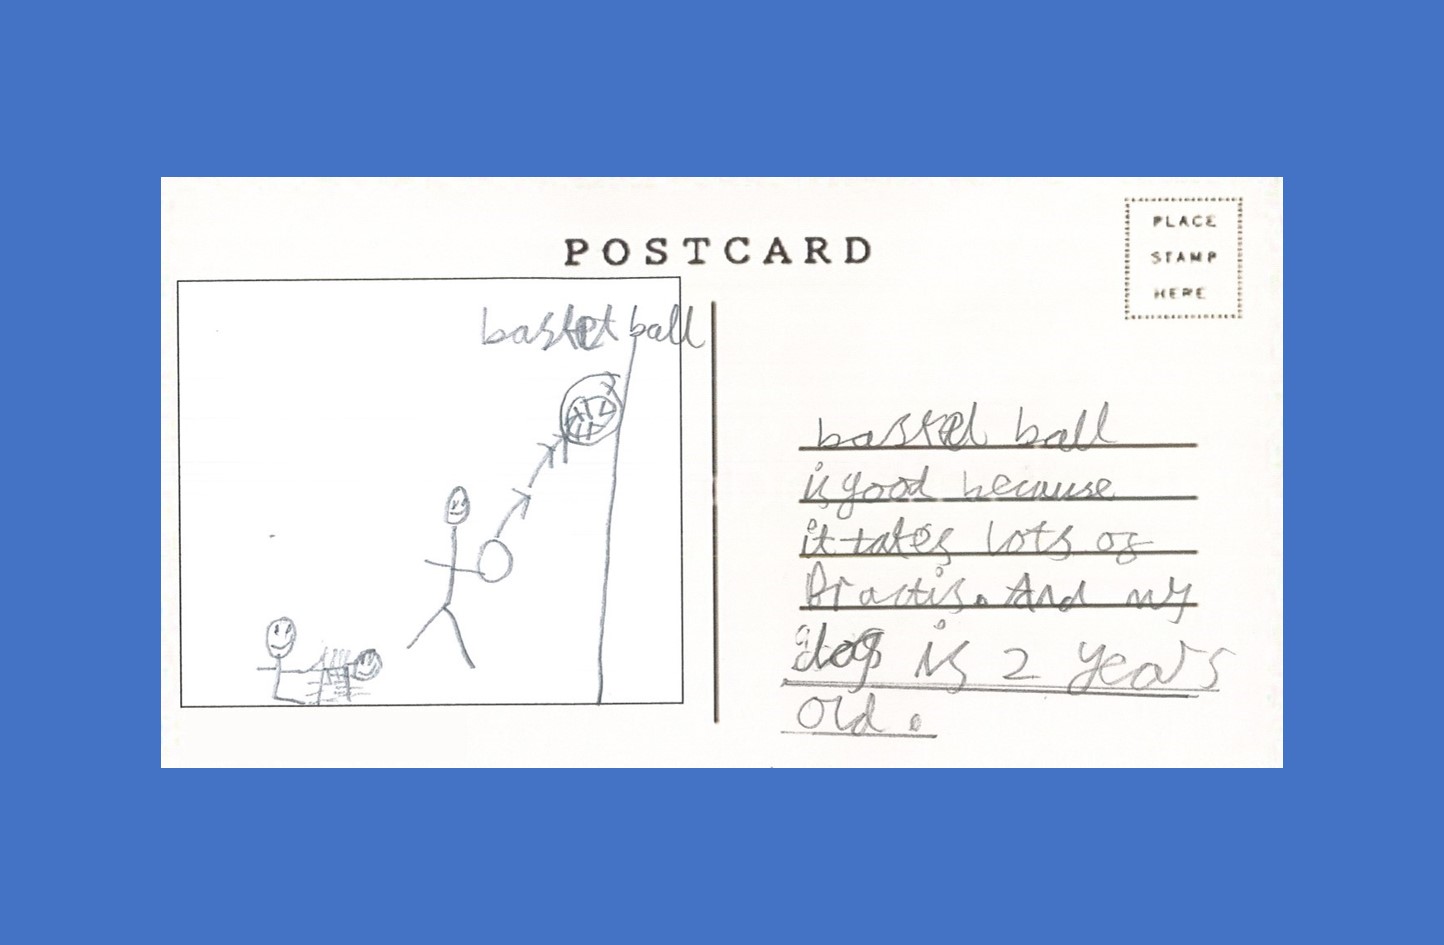 POSTCARD
PLACE
STAMP
HERE
basket ball
basket ball
is good because
it takes lots of
Practis. And my
dog is 2 years
old.